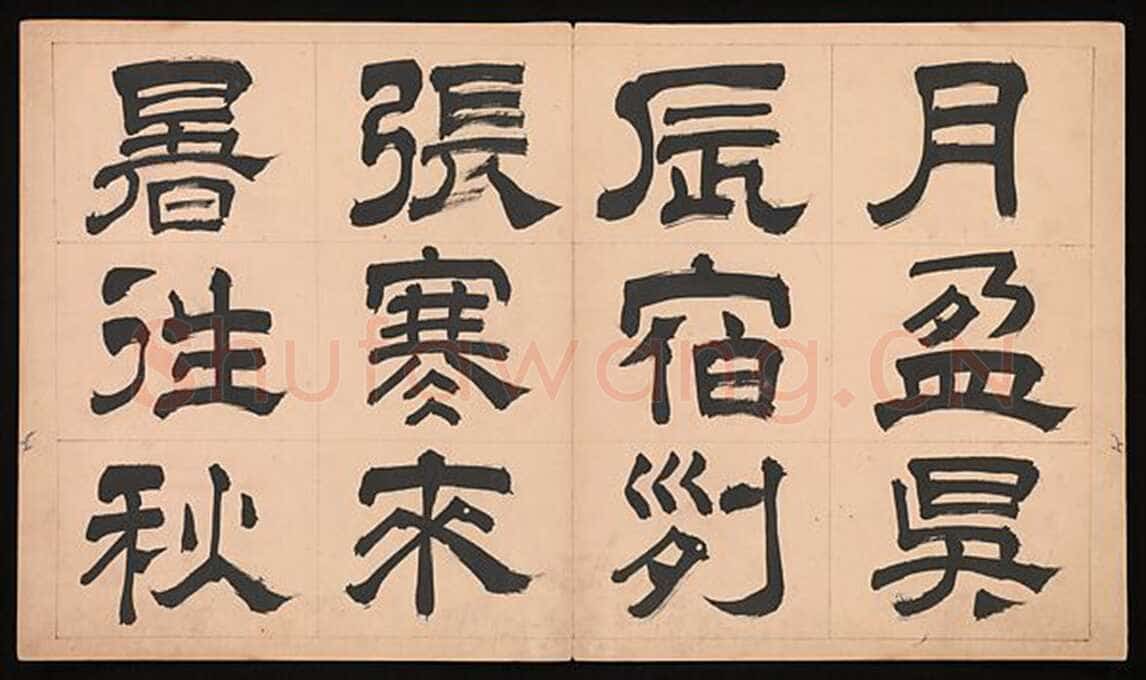 月盈昃
辰宿列
張寒來
暑往秋
Shufawang.CN